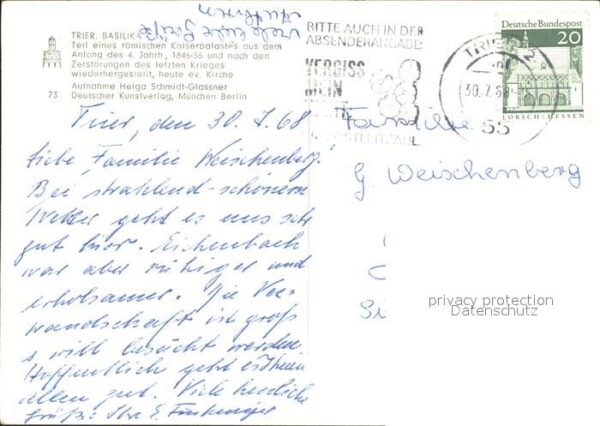 TRIER. BASILIKA
Teil eines römischen Kaiserpalastes aus dem
Anfang des 4. Jahrh., 1846-56 und nach den
Zerstörungen des letzten Krieges
wiederhergestellt, heute ev. Kirche
Aufnahme Helga Schmidt-Glassner
73 Deutscher Kunstverlag, München Berlin
viele liebe Grüße
BITTE AUCH IN DER
ABSENDERANGABE:
VERGISS
MEIN
POSTLEITZAHL
TRIER 2
30.7.68
55
Deutsche Bundespost
20
LORSCH/HESSEN
Trier, den 30. 7. 68
Liebe Familie Weischenberg.
Bei strahlend-schönem
Wetter geht es uns sehr
gut hier. Eichenbach
war aber ruhiger und
erholsamer. Die Ver-
wandschaft ist groß
s will besucht werden.
Hoffentlich geht es Ihnen
allen gut. Viele herzliche
Grüße: Ihre E.
Familie
G. Weischenberg
privacy protection
Datenschutz